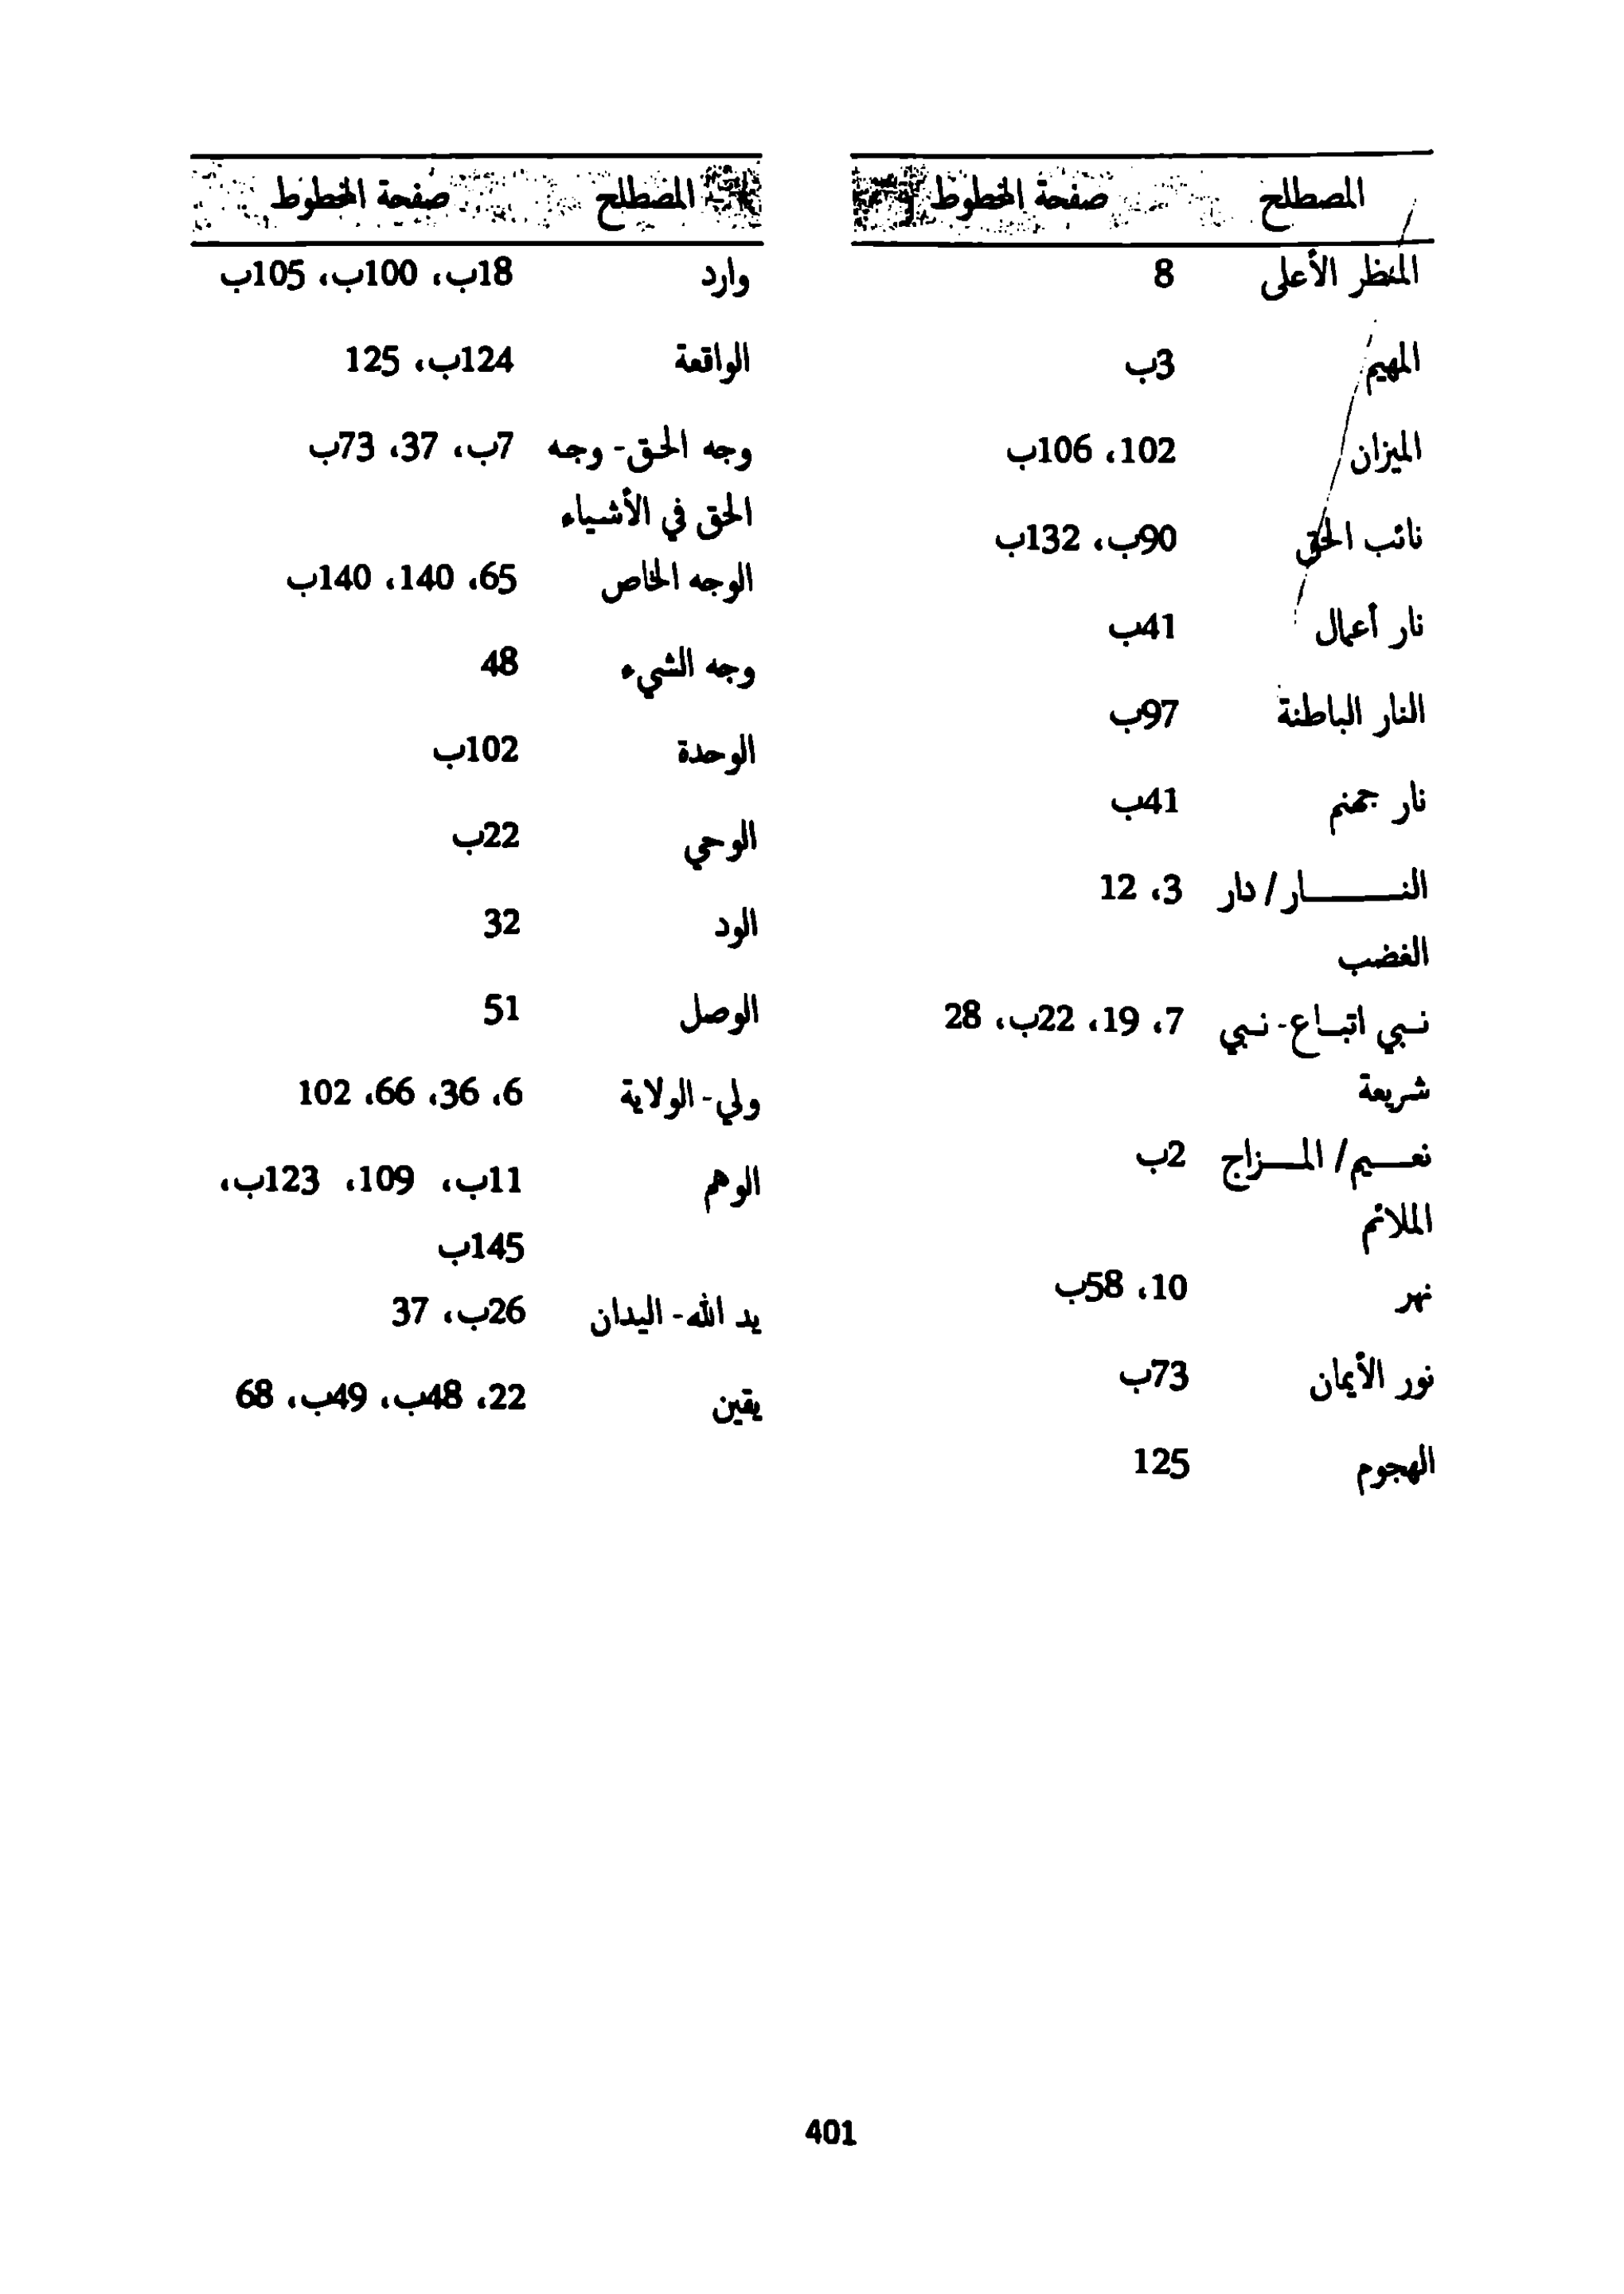 المصطلح صفحة المخطوط
المنظر الأعلى 8
المهيم 3ب
الميزان 102، 106ب
نائب الحق 90ب، 132ب
نار أعمال 41ب
النار الباطنة 97ب
نار جهنم 41ب
النـــــار/ دار 3، 12
الغضب
نبي اتباع- نبي 7، 19، 22ب، 28
شريعة
نعـــيم/ المـــزاج 2ب
الملائم
نهر 10، 58ب
نور الأيمان 73ب
الهجوم 125
المصطلح صفحة المخطوط
وارد 18ب، 100ب، 105ب
الواقعة 124ب، 125
وجه الحق- وجه 7ب، 37، 73ب
الحق في الأشياء
الوجه الخاص 65، 140، 140ب
وجه الشيء 48
الوحدة 102ب
الوحي 22ب
الود 32
الوصل 51
ولي- الولاية 6، 36، 66، 102
الوهم 11ب، 109، 123ب،
145ب
يد الله- اليدان 26ب، 37
يقين 22، 48ب، 49ب، 68
401